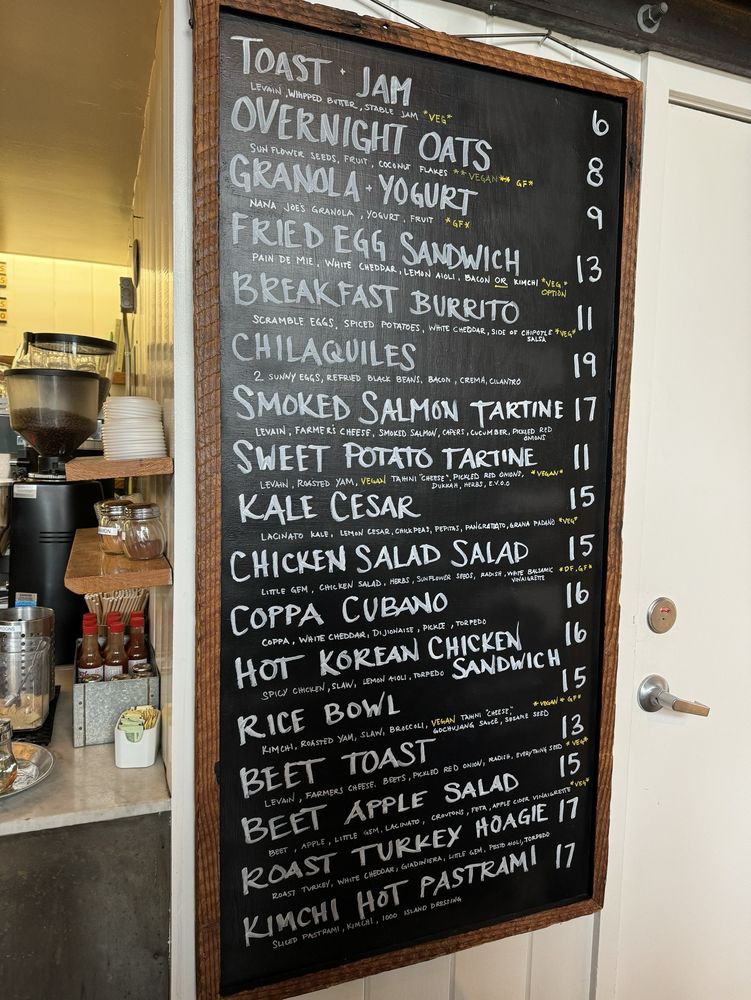 TOAST + JAM 6
LEVAIN, WHIPPED BUTTER, STABLE JAM *VEG*
OVERNIGHT OATS 8
SUNFLOWER SEEDS, FRUIT, COCONUT FLAKES **VEGAN** GF*
GRANOLA + YOGURT 9
NANA JOE'S GRANOLA, YOGURT, FRUIT *GF*
FRIED EGG SANDWICH 13
PAIN DE MIE, WHITE CHEDDAR, LEMON AIOLI, BACON OR KIMCHI *VEG*
OPTION
BREAKFAST BURRITO 11
SCRAMBLE EGGS, SPICED POTATOES, WHITE CHEDDAR, SIDE OF CHIPOTLE *VEG*
SALSA
CHILAQUILES 19
2 SUNNY EGGS, REFRIED BLACK BEANS, BACON, CREMA, CILANTRO
SMOKED SALMON TARTINE 17
LEVAIN, FARMER'S CHEESE, SMOKED SALMON, CAPERS, CUCUMBER, PICKLED RED
ONIONS
SWEET POTATO TARTINE 11
LEVAIN, ROASTED YAM, VEGAN TAHINI "CHEESE", PICKLED RED ONIONS, *VEGAN*
DUKKAH, HERBS, E.V.O.O
KALE CESAR 15
LACINATO KALE, LEMON CESAR, CHICKPEAS, PEPITAS, PANGRATTATO, GRANA PADANO *VEG*
CHICKEN SALAD SALAD 15
LITTLE GEM, CHICKEN SALAD, HERBS, SUNFLOWER SEEDS, RADISH, WHITE BALSAMIC *DF, GF*
VINAIGRETTE
COPPA CUBANO 16
COPPA, WHITE CHEDDAR, DIJIONAISE, PICKLE, TORPEDO
HOT KOREAN CHICKEN 16
SANDWICH
SPICY CHICKEN, SLAW, LEMON AIOLI, TORPEDO
RICE BOWL 15
KIMCHI, ROASTED YAM, SLAW, BROCCOLI, VEGAN TAHNI "CHEESE" *VEGAN* GF*
GOCHUJANG SAUCE, SESAME SEED
BEET TOAST 13
LEVAIN, FARMERS CHEESE, BEETS, PICKLED RED ONION, RADISH, EVERYTHING SEED *VEG*
BEET APPLE SALAD 15
BEET, APPLE, LITTLE GEM, LACINATO, CROUTONS, FETA, APPLE CIDER VINAIGRETTE *VEG*
ROAST TURKEY HOAGIE 17
ROAST TURKEY, WHITE CHEDDAR, GIADINIERA, LITTLE GEM, PESTO AIOLI, TORPEDO
KIMCHI HOT PASTRAMI 17
SLICED PASTRAMI, KIMCHI, 1000 ISLAND DRESSING